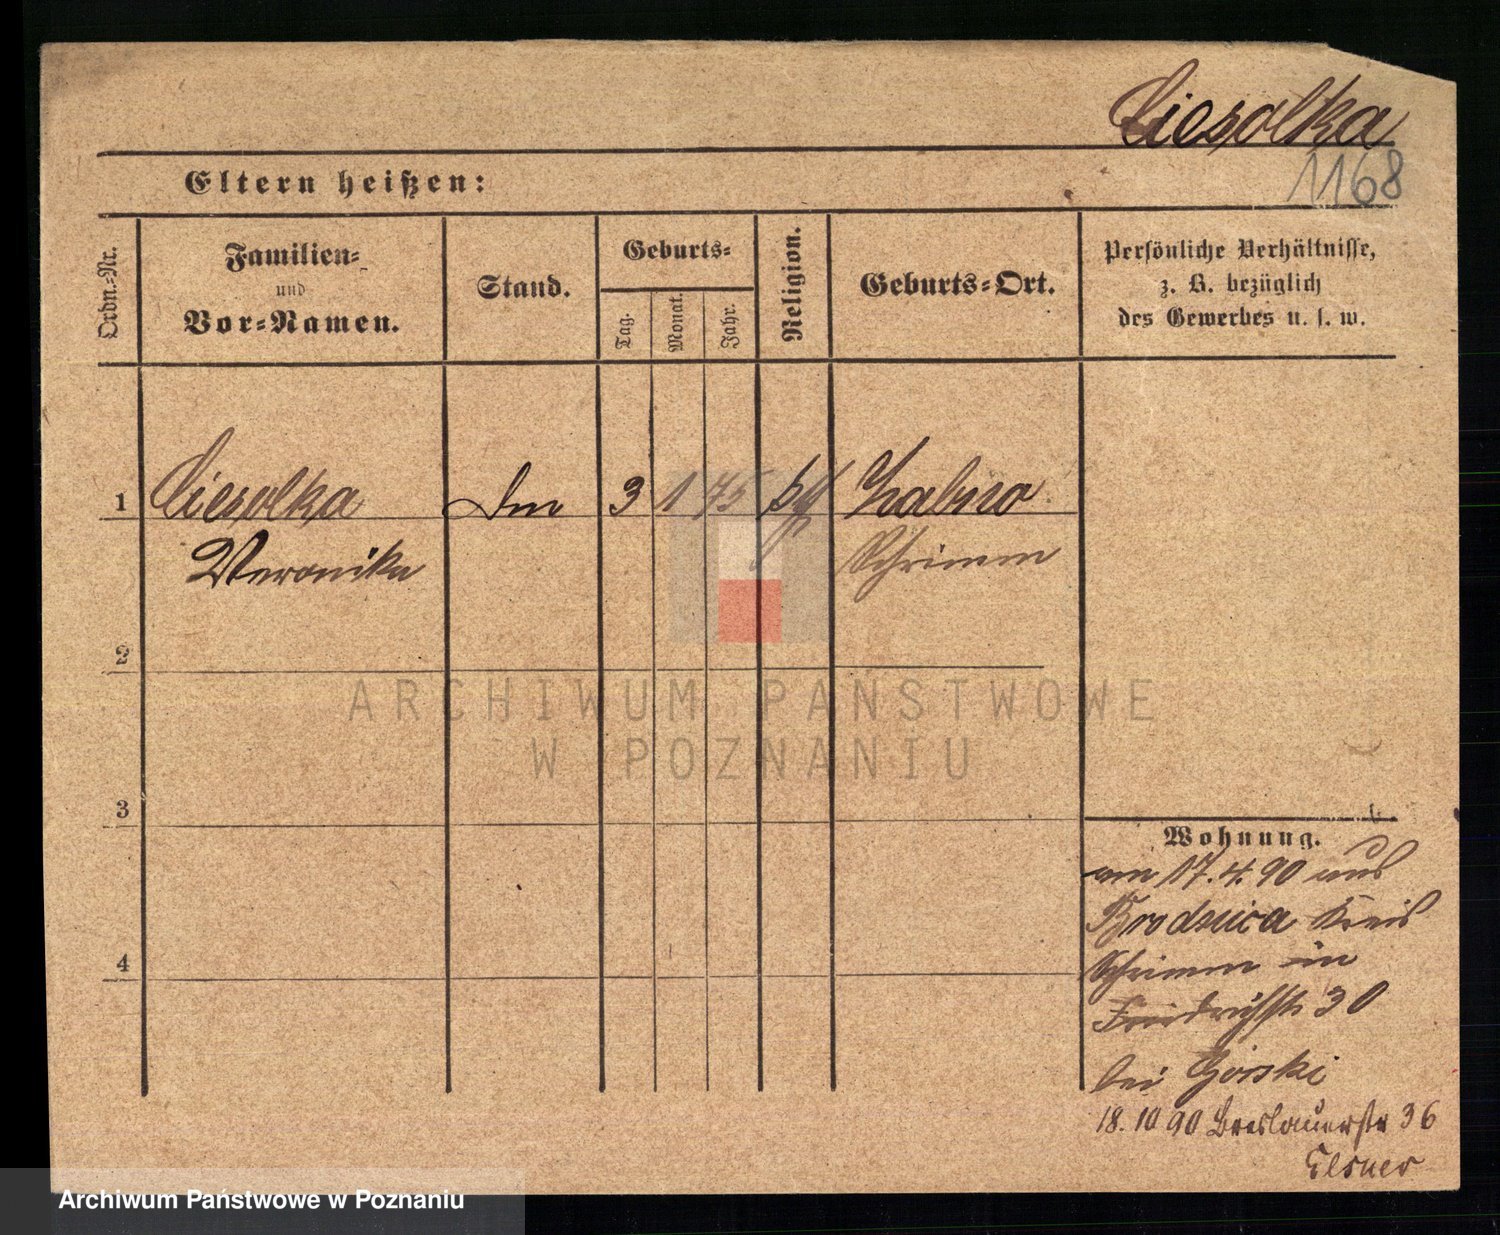 Ciesolka
1168
Eltern heißen:
Ordn.-Nr.
Familien-
und
Vor-Namen.
Stand.
Geburts-
Tag.
Monat.
Jahr.
Religion.
Geburts-Ort.
Persönliche Verhältnisse,
z. B. bezüglich
des Gewerbes u. s. w.
1 Ciesolka 3 1 75 Zabno
Veronika Schrimm
2
3
4
Wohnung.
am 17.4.90 aus
Brodnica Kreis
Schrimm in
Friedrichstr 30
bei Górski
18.10 90 Breslauerstr 36
Elsner
ARCHIWUM PAŃSTWOWE
W POZNANIU
Archiwum Państwowe w Poznaniu